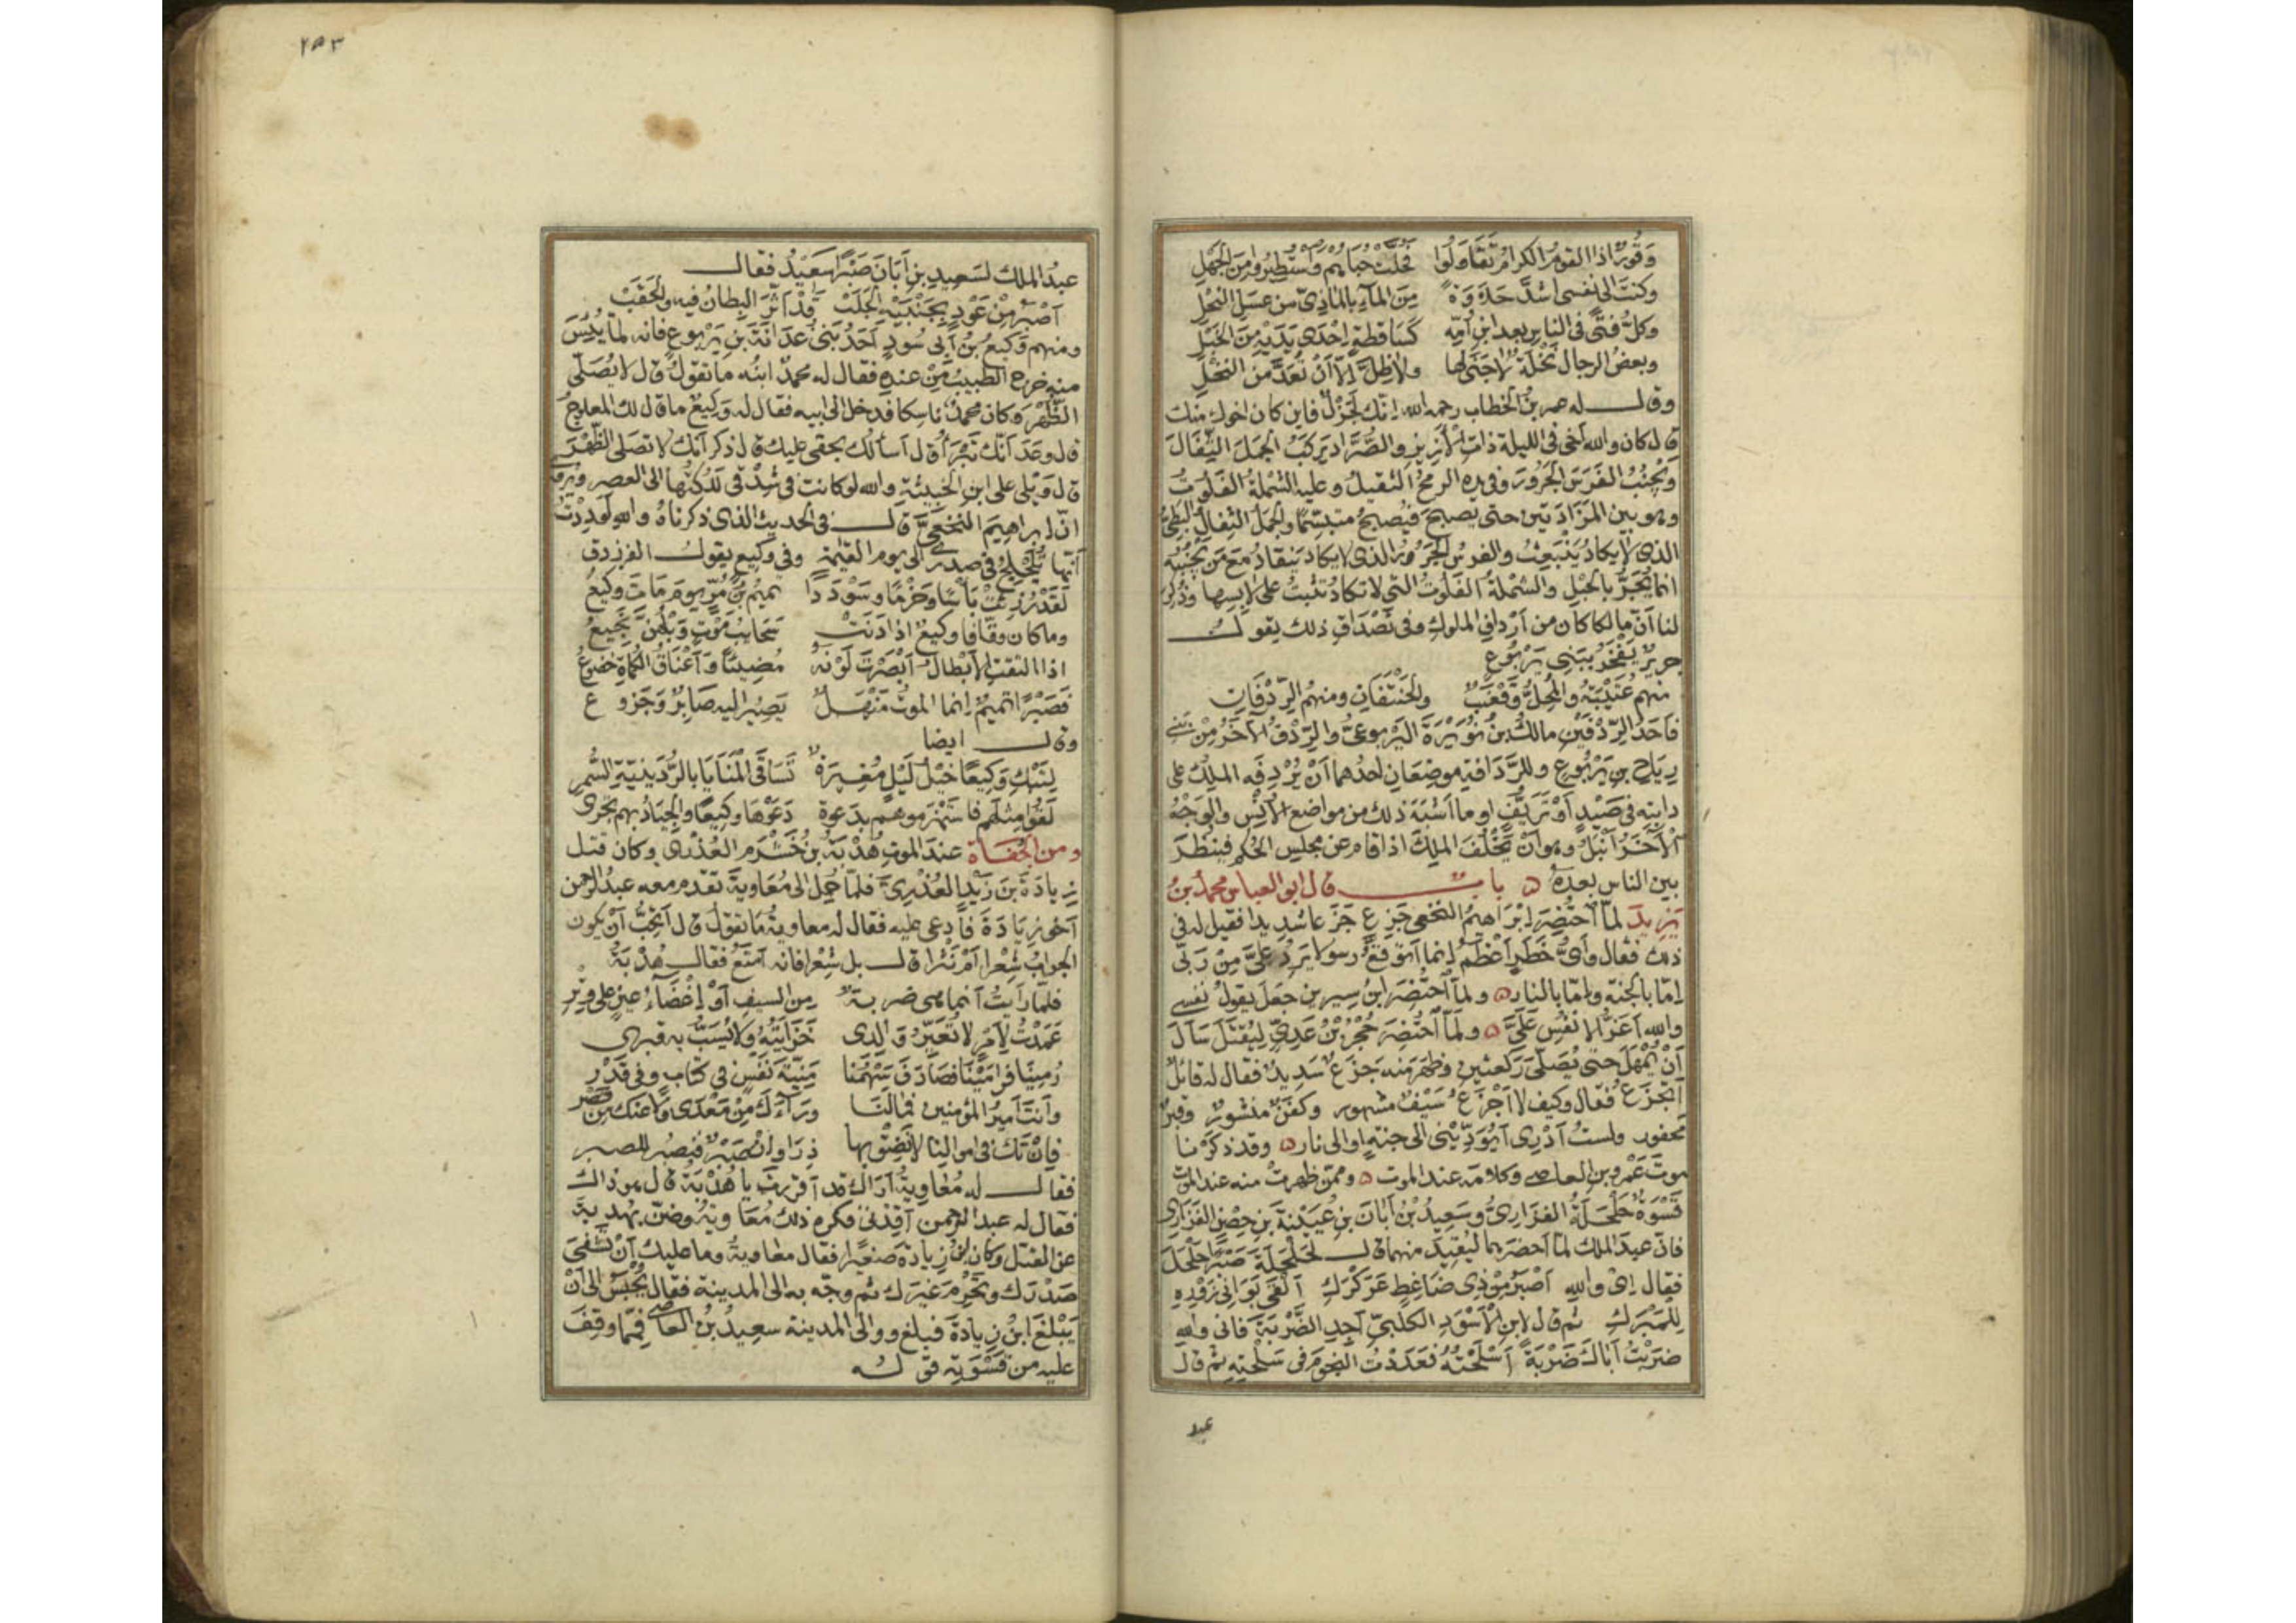 وَقُورٌ اذا القومُ الكرامُ تَقَاوَلُوا فَحُلَّتْ حُبَاهُم وَاسْتُطِيرُوا مِنَ الجَهْلِ
وكنتَ الى نفسى اشدَّ حَلَاوَةً مِنَ المآءِ بالماذِىّ من عسَلِ النحْلِ
وكلُّ فتًى فى الناسِ بعدَ ابنِ اُمِّهِ كَسَاقِطةٍ اِحْدَى يَدَيْهِ مِنَ الخَبْلِ
وبعضُ الرجالِ نَخْلَةٌ لا جَنَى لها ولا ظِلَّ اِلّا اَنْ تُعَدَّ منَ النخْلِ
وقال له عمر بنُ الخطاب رحمه الله اِنّكَ لَجَزْلٌ فاين كان اخوك منك
قال كان والله اَخى فى الليلة ذاتِ الاَزِيزِ والصُّرَّادِ يَركَبُ الجملَ الثَّفَالَ
ويَجْنُبُ الفَرَسَ الجَرُورَ وفى يده الرمحُ الثقيلُ وعليه الشَّمْلَةُ الفَلُوتُ
وهو بين المَزَادَتَيْنِ حتى يصبحَ فيُصبحُ متبسّمًا والجمَلُ الثفالُ البَطِىُّ
الذى لا يكاد يَنْبَعِثُ والفرسُ الجَرُورُ الذى لا يكاد يَنقادُ مَعَ مَن يَجْنُبُه
انما يُجَرُّ بالحبْلِ والشمْلةُ الفَلُوتُ التى لا تكادُ تثبتُ على لابسِها وذُكِرَ
لنا اَنّ مالكا كان من اَرْدافِ الملوكِ وفى تَصْدَاقِ ذلك يقول
جريرٌ يَفْخَرُ ببَنِى يَرْبُوعٍ
منهم عُتَيْبَةُ والمُحِلُّ وقَعْنَبٌ والحَنْتَفَانِ ومنهُم الرِّدْفَانِ
فاَحَدُ الرِّدْفَيْنِ مالكُ بنُ نُوَيْرَةَ اليَرْبوعىُّ والرِّدْفُ الآخَرُ مِنْ بَنِى
رِيَاحِ بنِ يَرْبُوعٍ وللرَّدَافةِ موضِعَانِ احدُهما اَنْ يُرْدِفَه المَلِكُ على
دابته فى صَيْدٍ اَوْ تَرَيُّفٍ او ما اَشْبَهَ ذلك من مواضع الاُنْسِ والوَجْهُ
الآخَرُ اَنْبَلُ وهو اَنْ يَخْلُفَ المَلِكَ اذا قام عن مجلسِ الحُكْمِ فينظُرَ
بين الناسِ بعدهُ باب قال ابو العباس محمدُ بنُ
يَزِيدَ لمّا احتُضِرَ اِبْرَاهِيمُ النخعى جَزِعَ جَزَعًا شَدِيدًا فقيل له فى
ذلك فقال وأىُّ خَطَرٍ اَعْظَمُ اِنما اَتَوَقَّعُ رسولا يَرِدُ علىَّ مِنْ رَبّى
اِمّا بالجنّةِ واِمّا بالنار ولمّا احتُضِرَ ابنُ سيرين جَعَلَ يقولُ نفسى
والله اَعَزُّ الانفُسِ عَلَىَّ ولَمّا احتُضِرَ حُجْرُ بْنُ عَدِىٍّ لِيُقْتَلَ سَأَلَ
اَنْ يُمْهَلَ حتى يُصَلّىَ رَكعتَينِ وظهَرَ منه جَزَعٌ شَدِيدٌ فقال له قائلٌ
اَتَجْزَعُ فقال وكيف لا اَجْزَعُ سَيْفٌ مشهور وكَفَنٌ منشورٌ وقبرٌ
محفور ولستُ اَدْرِى اَيُؤَدِّيْنى الى جنةٍ او الى نار وقد ذكرْنا
موتَ عَمْرِو بنِ العاصى وكلامَه عند الموت وممّن ظهرتْ منه عند الموت
قَسْوَةٌ حَلْحَلَةُ الفَزارِىُّ وسَعِيدُ بْنُ اَبَانَ بنِ عُيَيْنَةَ بنِ حِصْنٍ الفَزَارِىُّ
فانّ عبدَ الملك لمّا اَحضَرَهما ليُقِيدَ منهما قال لحَلْحَلَةَ صَبْرًا حَلْحَلَ
فقال اِى والله اَصْبَرُ مِنْ ذِى ضَاغِطٍ عَرَكْرَكِ اَلْقَى بَوَانِى زَوْرِهِ
للمَبْرَكِ ثم قال لابنِ الاَسْوَدِ الكلبِىِّ اَجِدِ الضَّرْبَةَ فانى والله
ضرَبْتُ اَبَاكَ ضَرْبَةً اَسْلَحَتْهُ فَعَدَدْتُ النجومَ فى سَلْحَتِهِ ثم قال
عبد
٢٥٣
عبدُ الملك لسَعِيدِ بنِ اَبَانَ صَبْرًا سَعِيدُ فقال
اَصْبَرُ مِنْ عَوْدٍ بِجَنْبَيْهِ الجُلَبْ قَدْ اَثَّرَ البِطَانُ فيه والحَقَبْ
ومنهم وَكِيعُ بْنُ اَبى سُودٍ اَحَدُ بَنِى غُدَانَةَ بنِ يَرْبوعٍ فانه لمّا يُئِسَ
منه خرج الطبيبُ مِنْ عندِهِ فقال له محمدٌ ابنُه ما تقولُ قال لا يُصَلّى
الظُّهْرَ وكان محمدٌ ناسِكا فدخل الى ابيه فقال له وَكِيعٌ ما قال لك المعلوجُ
قال وَعَدَ اَنّكَ تَبْرَأُ قال اَسألُكَ بحقى عليك قال ذكر اَنك لا تصلى الظُّهْرَ
قال وَيْلِى على ابنِ الخبيثةِ والله لو كانت فى شِدْقِى لَلُكْتُها الى العصر ويُروى
انّ اِبراهيمَ النخعىَّ قال فى الحديث الذى ذكرناهُ واللهِ لَوَدِدْتُ
اَنّها تُلَجْلِجُ فى صدرى الى يوم القيٰمة وفى وكيع يقول الفرزدق
لَقَدْ رُزِئَتْ بَأْسًا وحَزْمًا وسَوْدَدًا تميمُ بْنُ مُرٍّ يومَ مَاتَ وكيعُ
وما كان وقّافا وكيعٌ اذا دَنَتْ سَحَائبُ مَوْتٍ وَبْلُهُنَّ نَجِيعُ
اذا التقتِ الاَبْطالُ اَبْصَرْتَ لَوْنَهُ مُضِيئًا وَاَعْنَاقُ الكُمَاةِ خضوعُ
فَصَبْرًا تميمُ اِنما الموتُ مَنْهَلٌ يَصِيرُ اليهِ صَابِرٌ وَجَزوع
وقال ايضا
لِتَبْكِ وَكِيعًا خَيْلُ لَيْلٍ مُغِيرَةٌ تَسَاقَى الْمَنَايَا بالرُّدَينِيّةِ السُّمْرِ
لَقُوا مِثْلَهُم فاستَهْزَموهم بدَعوة دَعَوْهَا وكيعًا والجِيَادُ بهم تَجْرِى
ومن الجُفاة عند الموتِ هُدْبَةُ بنُ خَشْرَمٍ العُذْرِىُّ وكان قتل
زِيادَةَ بنَ زَيْدٍ العُذْرِىَّ فلمّا حُمِلَ الى مُعَاوِيةَ تقدم معه عبدُ الرحمن
اَخُو زِيَادَةَ فادعى عليه فقال له معاويةُ ما تقولُ قال اَتحِبُّ اَنْ يكون
الجوابُ شِعْرا اَمْ نَثْرا قال بل شِعْرا فانه اَمْتَعُ فقال هُدْبَةُ
فلمّا رَاَيتُ اَنما هى ضربةٌ مِنَ السيفِ اَوْ اِغْضَاءُ عينٍ على وِتْرِ
عَمَدْتُ لِاَمْرٍ لا تُعَيَّرُ وَالِدى خَزَايَتُهُ ولا يُسَبُّ بهِ قبرى
رُمِينَا فرامَيْنَا فصَادَفَ سَهْمُنَا مَنِيّةَ نَفْسٍ فى كتابٍ وفى قَدْرِ
وانتَ اَميرُ المؤمنين فمَا لنَا ورَآءَكَ مِنْ مَعْدًى ولا عنك مِن قَصْرِ
فاِنْ تَكُ فى اموالِنا لا نَضِقْ بِها ذِرَاعًا واِنْ صَبْرٌ فنَصْبُر للصبر
فقال له مُعَاوِيةُ اَرَاكَ قد اَقررتَ يا هُدْبَةُ قال هو ذاك
فقال له عبدُ الرحمن اَقِدْنى فكره ذلك مُعَاوِيةُ وضَنّ بهُدبةَ
عن القتل وكان ابنُ زيادةَ صَغِيرًا فقال معاويةُ وما عليك اَنْ نَشْفِىَ
صَدْرَكَ ونَحْرِمَ غيرَك ثم وجّه به الى المدينة فقال يُحْبَسُ الى اَنْ
يَبْلُغَ ابنُ زِيادَةَ فبلغ ووالى المدينة سعِيدُ بنُ العاصى فمِمّا وقِفَ
عليه من قَسْوَتِه قوله